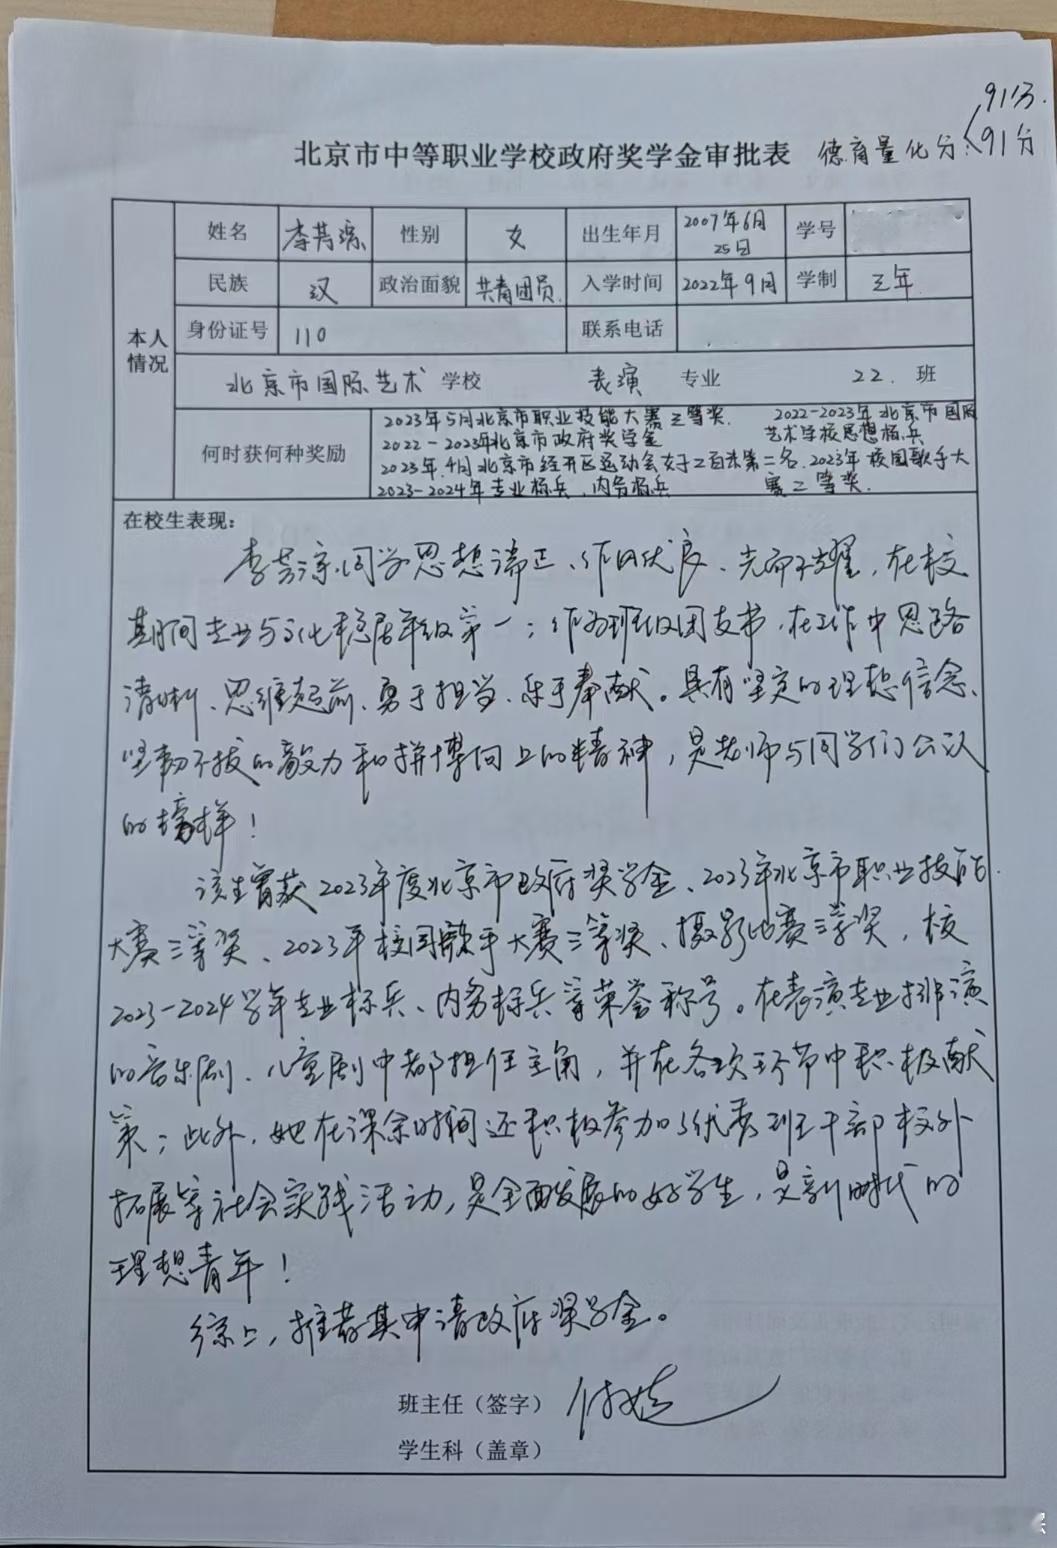 91分.
北京市中等职业学校政府奖学金审批表 德育量化分: 91分
姓名 李芸漂 性别 女 出生年月 2007年6月25日 学号
民族 汉 政治面貌 共青团员. 入学时间 2022年9月 学制 三年.
本人情况
身份证号 110 联系电话
北京市国际艺术 学校 表演 专业 22. 班
何时获何种奖励
2023年5月北京市职业技能大赛三等奖. 2022-2023年北京市国际艺术学校思想标兵
2022-2023年北京市政府奖学金
2023年.4月北京市经开区运动会女子二百米第二名.2023年校园歌手大赛三等奖.
2023-2024年专业标兵、内务标兵
在校生表现:
李芸 同学思想端正、作风优良、光而不耀,在校
期间专业与文化稳居年级第一;作为班级团支书,在工作中思路
清晰、思维超前、勇于担当、乐于奉献。具有坚定的理想信念、
坚韧不拔的毅力和拼搏向上的精神,是老师与同学们公认
的榜样!
该生曾获2023年度北京市政府奖学金、2023年北京市职业技能
大赛三等奖、2023年校园歌手大赛三等奖、摄影比赛三等奖,校
2023-2024学年专业标兵、内务标兵等荣誉称号。在表演专业排演
的音乐剧、儿童剧中都担任主角,并在各项环节中积极献
策;此外,她在课余时间还积极参加了优秀班干部校外
拓展等社会实践活动,是全面发展的好学生,是新时代的
理想青年!
综上,推荐其申请政府奖学金。
班主任(签字)
学生科(盖章)